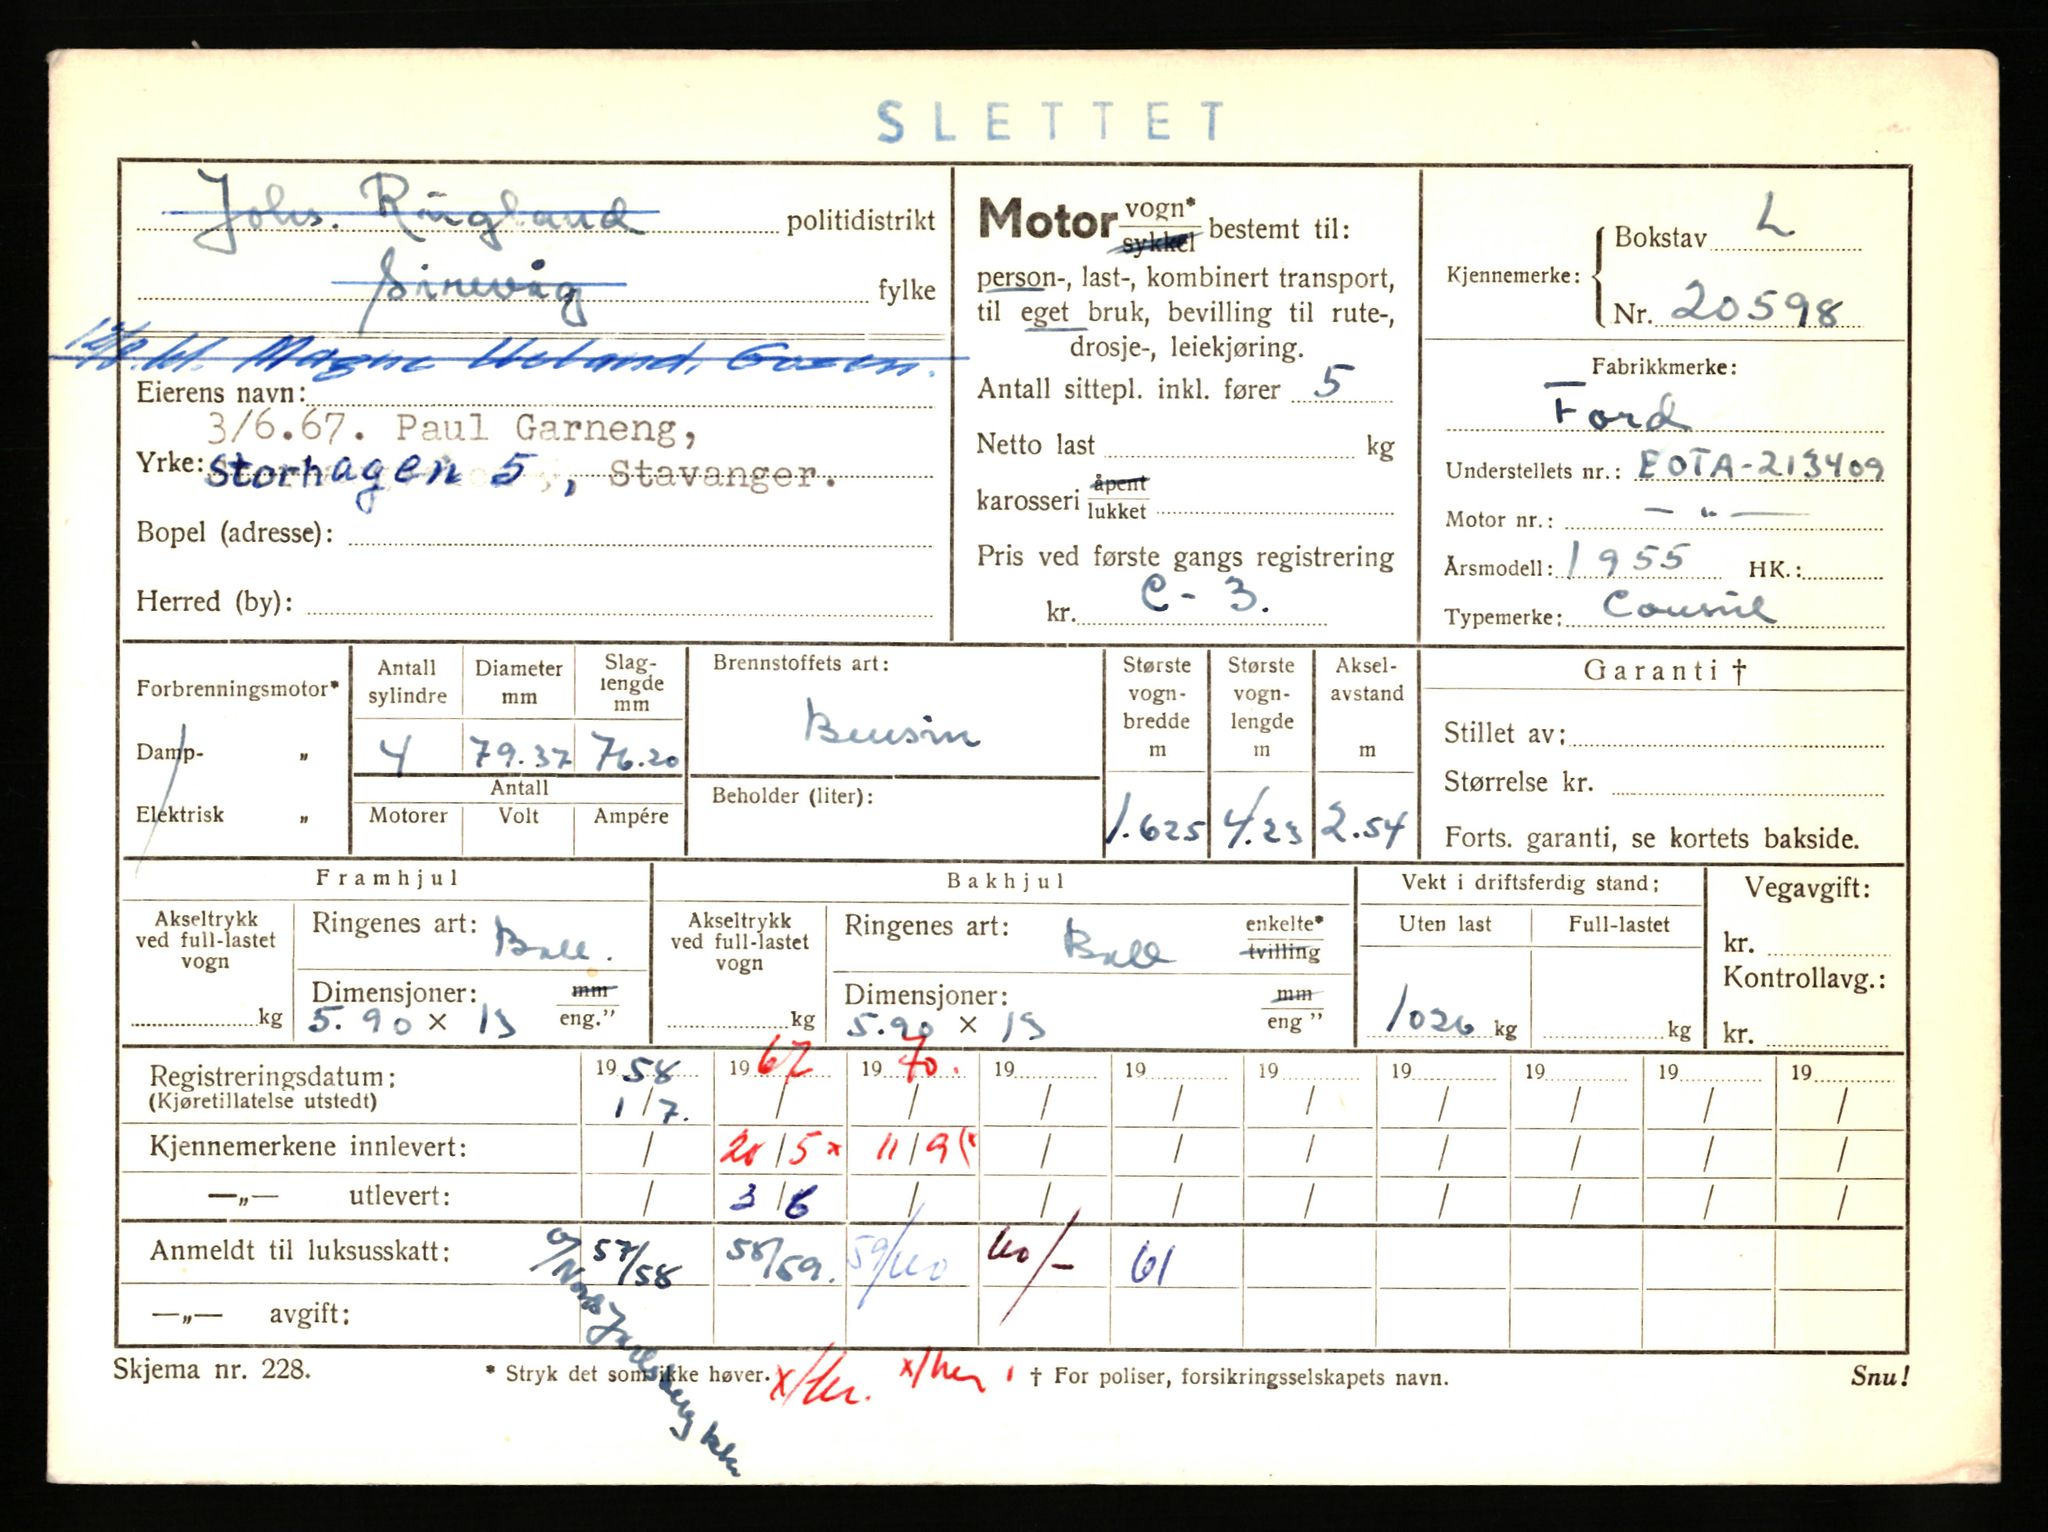 SLETTET
Johs. Ringland politidistrikt
Sirevåg fylke
Magne
Eierens navn:
3/6.67. Paul Garneng,
Yrke: Storhagen 5, Stavanger.
Bopel (adresse):
Herred (by):
Motor vogn* sykkel bestemt til:
person-, last-, kombinert transport,
til eget bruk, bevilling til rute-,
drosje-, leiekjøring.
Antall sittepl. inkl. fører 5
Netto last kg
karosseri åpent lukket
Pris ved første gangs registrering
kr. C-3.
Kjennemerke: Bokstav L
Nr. 20598
Fabrikkmerke:
Ford
Understellets nr.: EOTA-213409
Motor nr.: — " —
Årsmodell: 1955 HK.:
Typemerke: Consul
Forbrenningsmotor*
Damp- „
Elektrisk „
Antall sylindre 4
Diameter mm 79.37
Slag-lengde mm 76.20
Antall
Motorer Volt Ampére
Brennstoffets art:
Bensin
Beholder (liter):
Største vogn-bredde m 1.625
Største vogn-lengde m 4.23
Aksel-avstand m 2.54
Garanti †
Stillet av:
Størrelse kr.
Forts. garanti, se kortets bakside.
Framhjul
Akseltrykk ved full-lastet vogn kg
Ringenes art: Ball.
Dimensjoner: mm eng.”
5.90 × 13
Bakhjul
Akseltrykk ved full-lastet vogn kg
Ringenes art: Ball enkelte* tvilling
Dimensjoner: mm eng ”
5.90 × 13
Vekt i driftsferdig stand:
Uten last Full-lastet
1026 kg kg
Vegavgift:
kr.
Kontrollavg.:
kr.
Registreringsdatum: 19 58 19 67 19 70. 19 19 19 19 19 19 19
(Kjøretillatelse utstedt) 1/7. / / / / / / / / /
Kjennemerkene innlevert: / 20/5 x 11/9 (x / / / / / / /
—„— utlevert: / 3/6 / / / / / / / /
Anmeldt til luksusskatt: 57/58 58/59. 59/60 60/- 61
—„— avgift:
Skjema nr. 228.
* Stryk det som ikke høver.
† For poliser, forsikringsselskapets navn.
Snu!